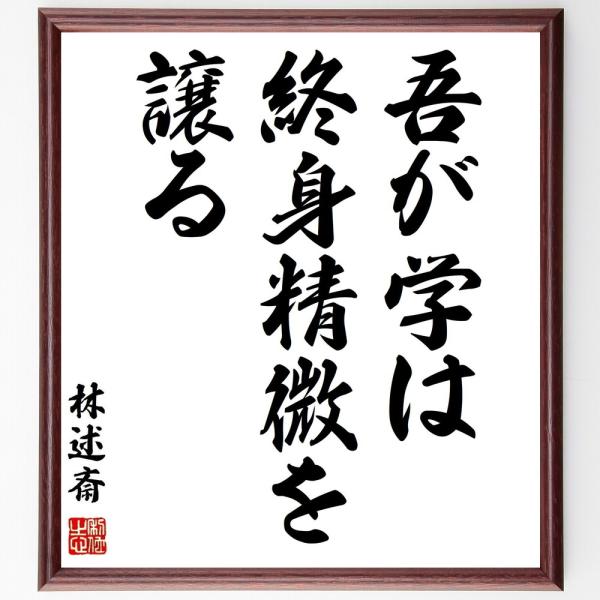 吾が学は
終身精微を
譲る
林述斎